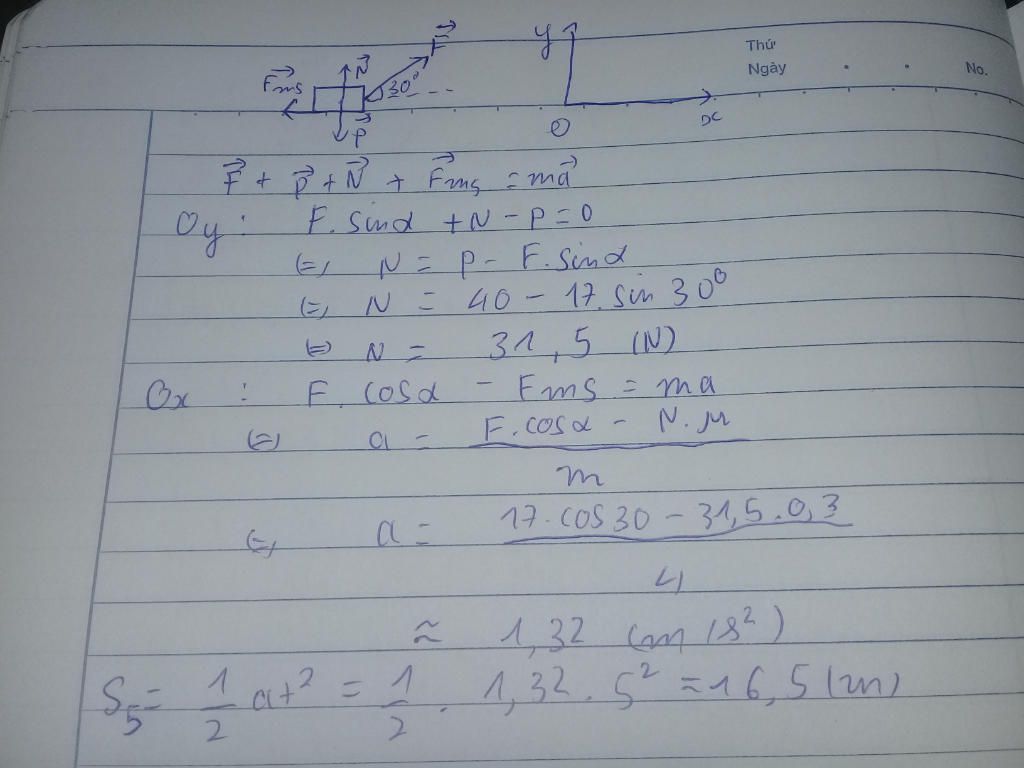 y
Thứ
Ngày
No.
F⃗
N⃗
F⃗ms
30°
P⃗
O
x
F⃗ + P⃗ + N⃗ + F⃗ms = ma⃗
Oy : F. sinα + N - P = 0
(=) N = P - F. sinα
(=) N = 40 - 17. sin 30°
(=) N = 31,5 (N)
Ox : F. cosα - Fms = ma
(=) a = F. cosα - N. μ
m
(=) a = 17. cos 30 - 31,5 . 0,3
4
≈ 1,32 (m/s²)
S₅ = 1/2 at² = 1/2 . 1,32 . 5² = 16,5 (m)